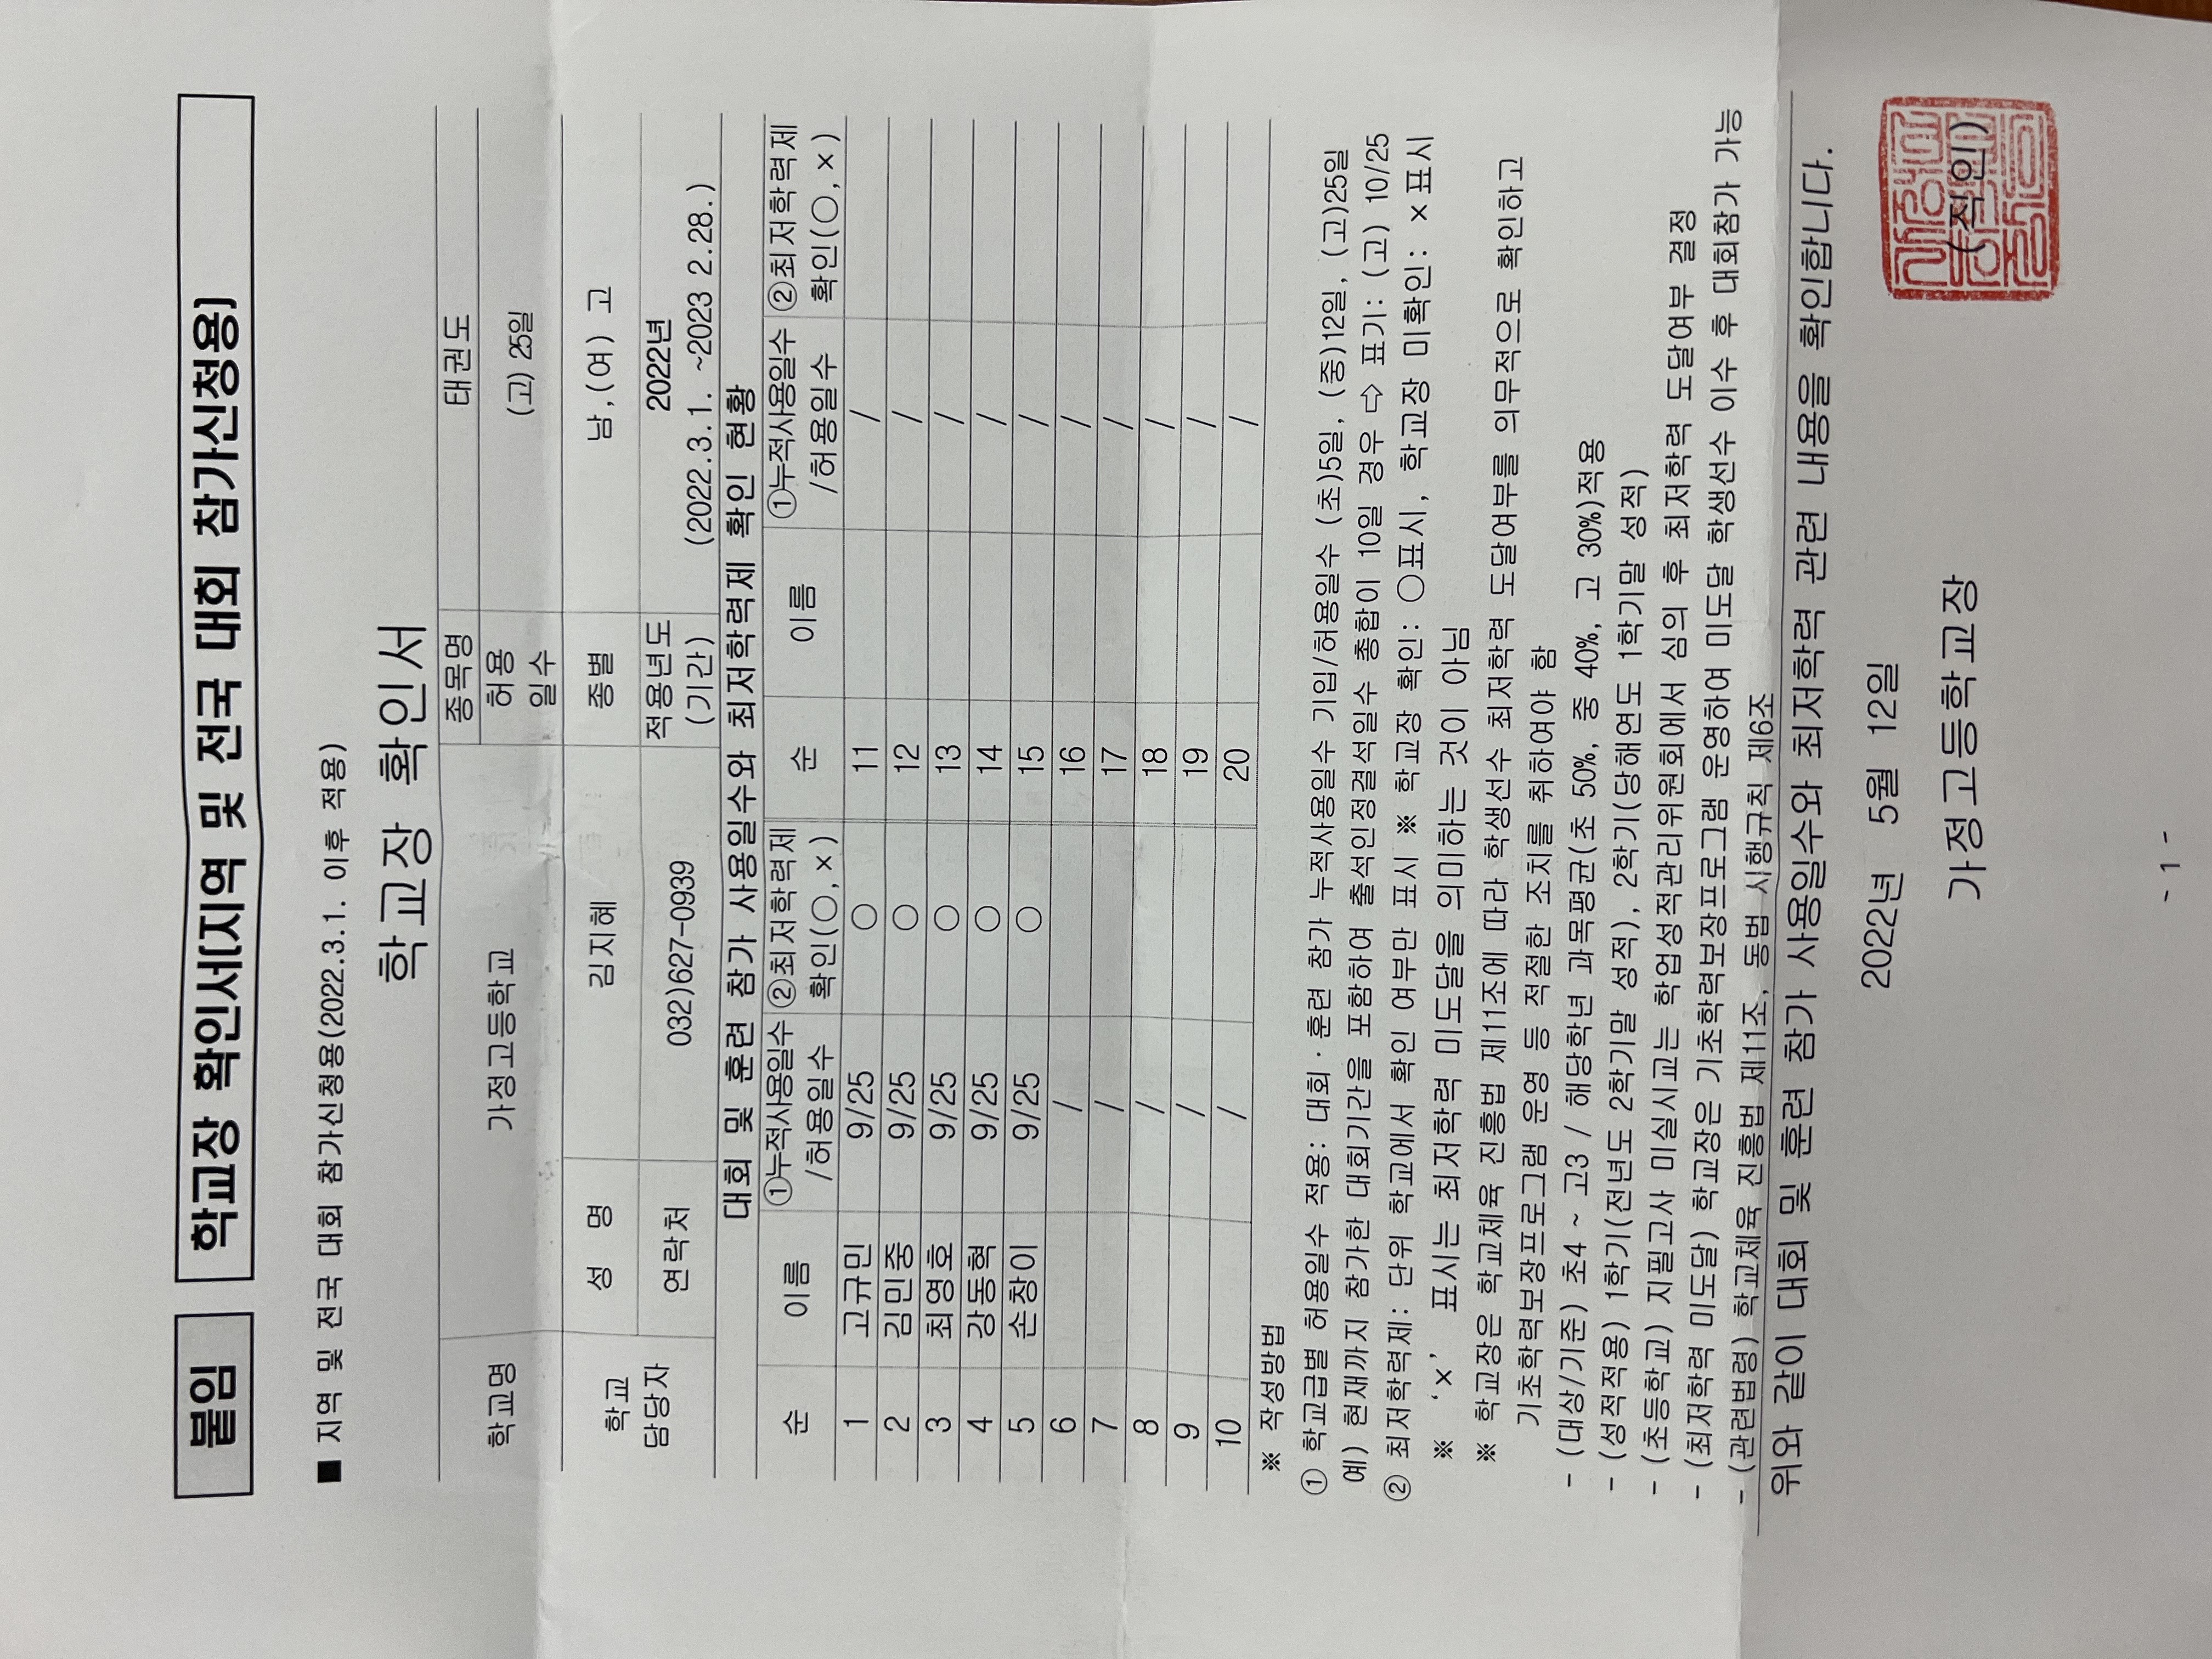 붙임 학교장 확인서(지역 및 전국 대회 참가신청용)
■ 지역 및 전국 대회 참가신청용(2022.3.1. 이후 적용)
학교장 확인서
학교명 가정고등학교 종목명 태권도
허용 일수 (고) 25일
학교 담당자 성 명 김지혜 종별 남,(여) 고
연락처 032)627-0939 적용년도 (기간) 2022년 (2022.3.1. ~2023 2.28.)
대회 및 훈련 참가 사용일수와 최저학력제 확인 현황
순 이름 ①누적사용일수 /허용일수 ②최저학력제 확인(○,×) 순 이름 ①누적사용일수 /허용일수 ②최저학력제 확인(○,×)
1 고규민 9/25 ○ 11 /
2 김민중 9/25 ○ 12 /
3 최영호 9/25 ○ 13 /
4 강동혁 9/25 ○ 14 /
5 손창이 9/25 ○ 15 /
6 / 16 /
7 / 17 /
8 / 18 /
9 / 19 /
10 / 20 /
※ 작성방법
① 학교급별 허용일수 적용: 대회·훈련 참가 누적사용일수 기입/허용일수 (초)5일, (중)12일, (고)25일
예) 현재까지 참가한 대회기간을 포함하여 출석인정결석일수 총합이 10일 경우 ⇨ 표기: (고) 10/25
② 최저학력제: 단위 학교에서 확인 여부만 표시 ※ 학교장 확인: ○표시, 학교장 미확인: ×표시
※ ‘×’ 표시는 최저학력 미도달을 의미하는 것이 아님
※ 학교장은 학교체육 진흥법 제11조에 따라 학생선수 최저학력 도달여부를 의무적으로 확인하고
기초학력보장프로그램 운영 등 적절한 조치를 취하여야 함
- (대상/기준) 초4 ~ 고3 / 해당학년 과목평균(초 50%, 중 40%, 고 30%)적용
- (성적적용) 1학기(전년도 2학기말 성적), 2학기(당해연도 1학기말 성적)
- (초등학교) 지필고사 미실시교는 학업성적관리위원회에서 심의 후 최저학력 도달여부 결정
- (최저학력 미도달) 학교장은 기초학력보장프로그램 운영하여 미도달 학생선수 이수 후 대회참가 가능
- (관련법령) 학교체육 진흥법 제11조, 동법 시행규칙 제6조
위와 같이 대회 및 훈련 참가 사용일수와 최저학력 관련 내용을 확인합니다.
2022년 5월 12일
가정고등학교장 (직인)
- 1 -